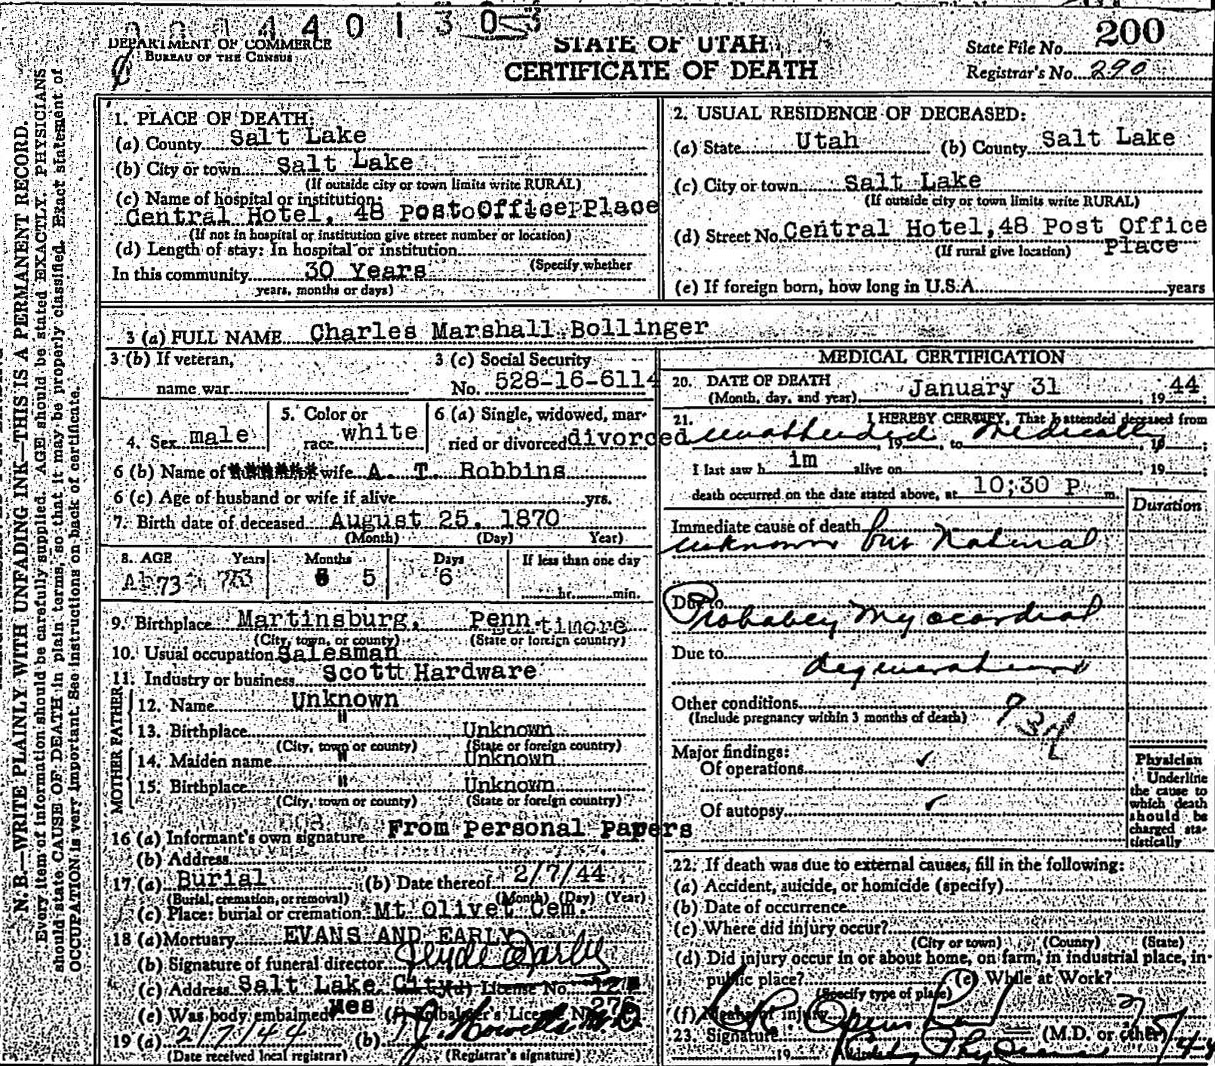 001440 1303
DEPARTMENT OF COMMERCE
BUREAU OF THE CENSUS
STATE OF UTAH
CERTIFICATE OF DEATH
State File No. 200
Registrar's No. 290
N. B.—WRITE PLAINLY WITH UNFADING INK—THIS IS A PERMANENT RECORD.
Every item of information should be carefully supplied. AGE should be stated EXACTLY. PHYSICIANS
should state CAUSE OF DEATH in plain terms, so that it may be properly classified. Exact statement of
OCCUPATION is very important. See instructions on back of certificate.
1. PLACE OF DEATH:
(a) County Salt Lake
(b) City or town Salt Lake
(If outside city or town limits write RURAL)
(c) Name of hospital or institution:
Central Hotel, 48 Post Office Place
(If not in hospital or institution give street number or location)
(d) Length of stay: In hospital or institution
(Specify whether
In this community 30 Years
years, months or days)
2. USUAL RESIDENCE OF DECEASED:
(a) State Utah (b) County Salt Lake
(c) City or town Salt Lake
(If outside city or town limits write RURAL)
(d) Street No. Central Hotel, 48 Post Office
(If rural give location) Place
(e) If foreign born, how long in U.S.A. years
3 (a) FULL NAME Charles Marshall Bollinger
3 (b) If veteran,
name war
3 (c) Social Security
No. 528-16-6114
4. Sex male
5. Color or
race white
6 (a) Single, widowed, mar-
ried or divorced divorced
6 (b) Name of wife A. T. Robbins
6 (c) Age of husband or wife if alive yrs.
7. Birth date of deceased August 25, 1870
(Month) (Day) Year)
8. AGE Years Months Days If less than one day
73 5 6 hr. min.
9. Birthplace Martinsburg, Penn
(City, town, or county) (State or foreign country)
10. Usual occupation Salesman
11. Industry or business Scott Hardware
FATHER
12. Name Unknown
13. Birthplace " Unknown
(City, town or county) (State or foreign country)
MOTHER
14. Maiden name Unknown
15. Birthplace " Unknown
(City, town or county) (State or foreign country)
16 (a) Informant's own signature From Personal Papers
(b) Address
17 (a) Burial (b) Date thereof 2/7/44
(Burial, cremation, or removal) (Month) (Day) (Year)
(c) Place: burial or cremation Mt Olivet Cem.
18 (a) Mortuary EVANS AND EARLY
(b) Signature of funeral director
(c) Address Salt Lake City (d) License No.
(e) Was body embalmed Yes (f) Embalmer's License No.
19 (a) 2/7/44 (b)
(Date received local registrar) (Registrar's signature)
MEDICAL CERTIFICATION
20. DATE OF DEATH
(Month, day, and year) January 31, 1944
21. I HEREBY CERTIFY, That I attended deceased from
unattended 19 to Medically 19 ;
I last saw h im alive on 19 ;
death occurred on the date stated above, at 10;30 P m.
Duration
Immediate cause of death
unknown but Natural
Due to Probabley Myocardial
Due to degeneration
Other conditions
(Include pregnancy within 3 months of death)
Major findings:
Of operations ✓
Of autopsy ✓
Physician
Underline
the cause to
which death
should be
charged sta-
tistically
22. If death was due to external causes, fill in the following:
(a) Accident, suicide, or homicide (specify)
(b) Date of occurrence
(c) Where did injury occur?
(City or town) (County) (State)
(d) Did injury occur in or about home, on farm, in industrial place, in
public place? (e) While at Work?
(Specify type of place)
(f) Means of injury
23. Signature (M.D. or other)
19 Address